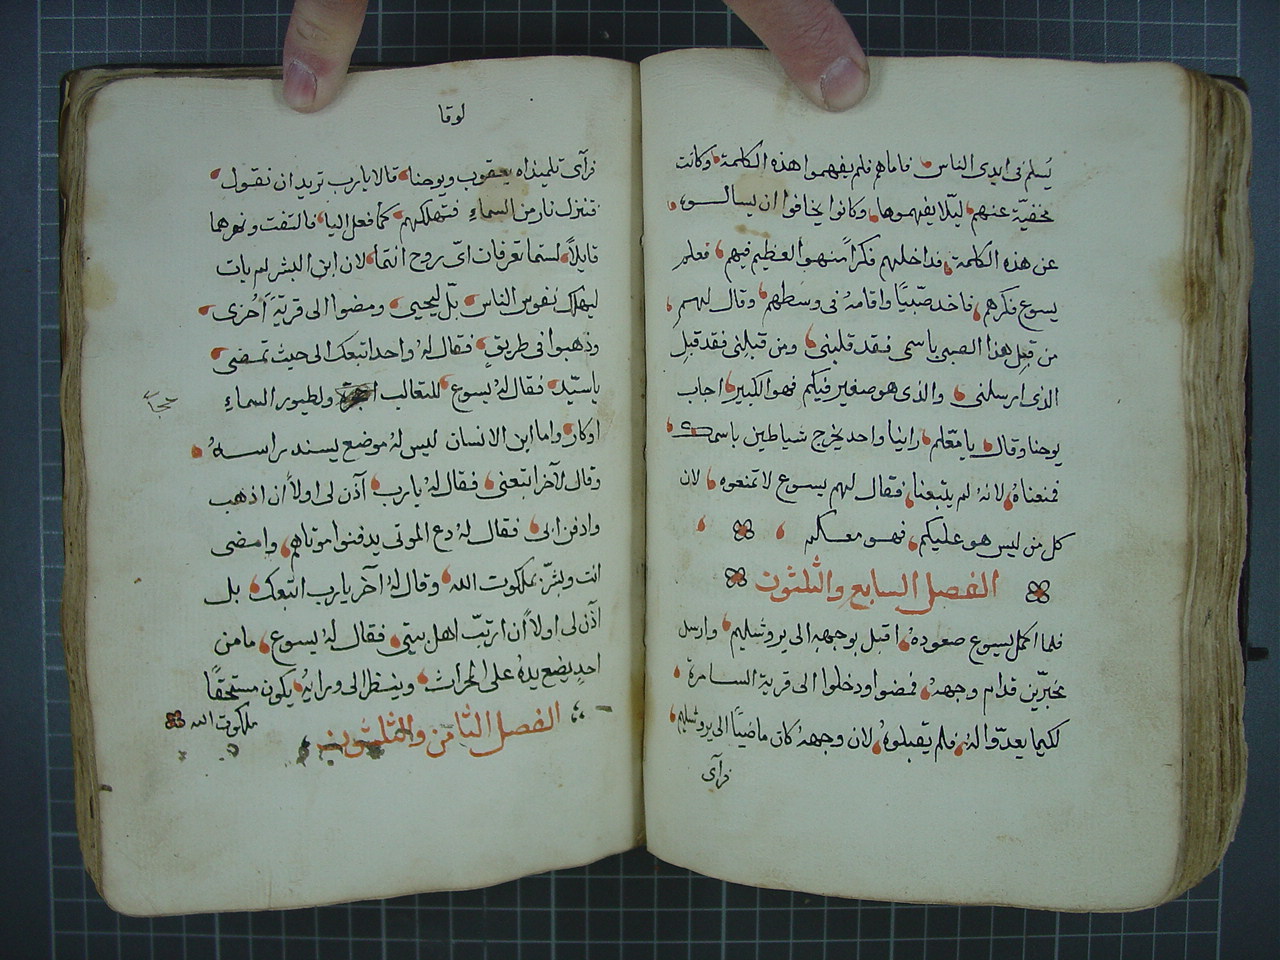 يُسلم في ايدى الناس فاما هم فلم يفهموا هذه الكلمة وكانت
مخفيّة عنهم ليّلا يفهموها وكانوا يخافوا ان يسالوه
عن هذه الكلمة فداخلهم فكرًا منهو العظيم فيهم فعلم
يسوع فكرهم فاخد صّبيًا واقامهُ في وسَطهم وقال لهم
من قبل هذا الصبي باسمي فقد قلبني ومن قبلني فقد قبل
الذى ارسلني والذى هو صغير فيكم فهو الكبير اجاب
يوحنا وقال يا مّعلم راينا واحد يخرج شياطين باسمك
فمنعناهُ لانهُ لم يتبعنا فقال لهم يسوع لا تمنعوه لان
كل من ليس هو عليكم فهو معكم
الفصل السابع والثلثون
فلما اكمل يسوع صعودهُ اقبل بوجهه الى يروشليم وارسل
مخبرّين قدام وجههُ فمضوا ودخلوا الى قرية السامرة
لكيما يعدّوا لهُ فلم يقبلوهُ لان وجههُ كان ماضيًا الى يروشليم
فرآى
لوقا
فرآى تلميذاه يعقوب ويوحنا قالا يا رب تريد ان نقول
فتنزل نار من السماءِ فتهلكهم كما فعل اليا فالتفت ونهرهما
قايلاً لستما تعرفان اىّ روح انتما لان ابن البشر لم يات
ليهلك نفوس الناس بّل ليحيى ومضوا الى قريّةً اُخرى
وذهبوا في طريقٍ فقال لهُ واحد اتبعك الى حيث تمضى
يا سيّد فقال لهُ يسوع للثعالب ولطيور السماءِ
اوكار واما ابن الانسان ليس لهُ موضع يسند راسهُ
وقال لآخر اتبعني فقال لهُ يا رب آذن لى اولاً ان اذهب
وادفن ابى فقال لهُ دع الموتى يدفنوا موتاهم وامضى
انت وبشّر بملكوت الله وقال لهُ آخر يا رب اتبعك بل
آذن لى اولاً ان ارتبّ اهل بيتى فقال لهُ يسوع ما من
احدٍ يضع يدهُ على المحراث وينظر الى ورائهُ يكون مستحقًا
ملكوت الله
الفصل الثامن والثلثون